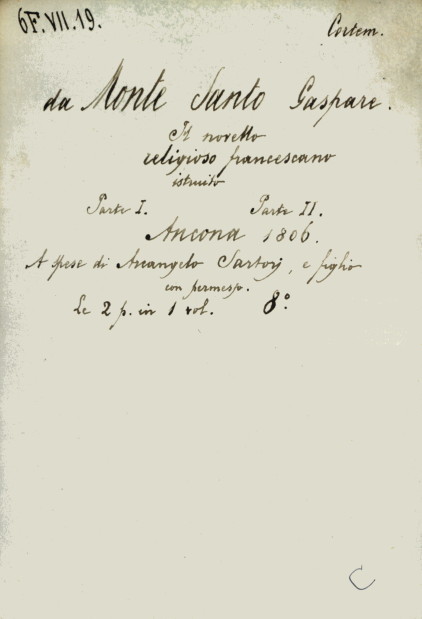 6F.VII.19.
Cortem.
da Monte Santo Gaspare.
Il novello
religioso francescano
istruito
Parte I. Parte II.
Ancona 1806.
A spese di Arcangelo Sartorj, e figlio
con permesso.
Le 2 p. in 1 vol. 8°.
C